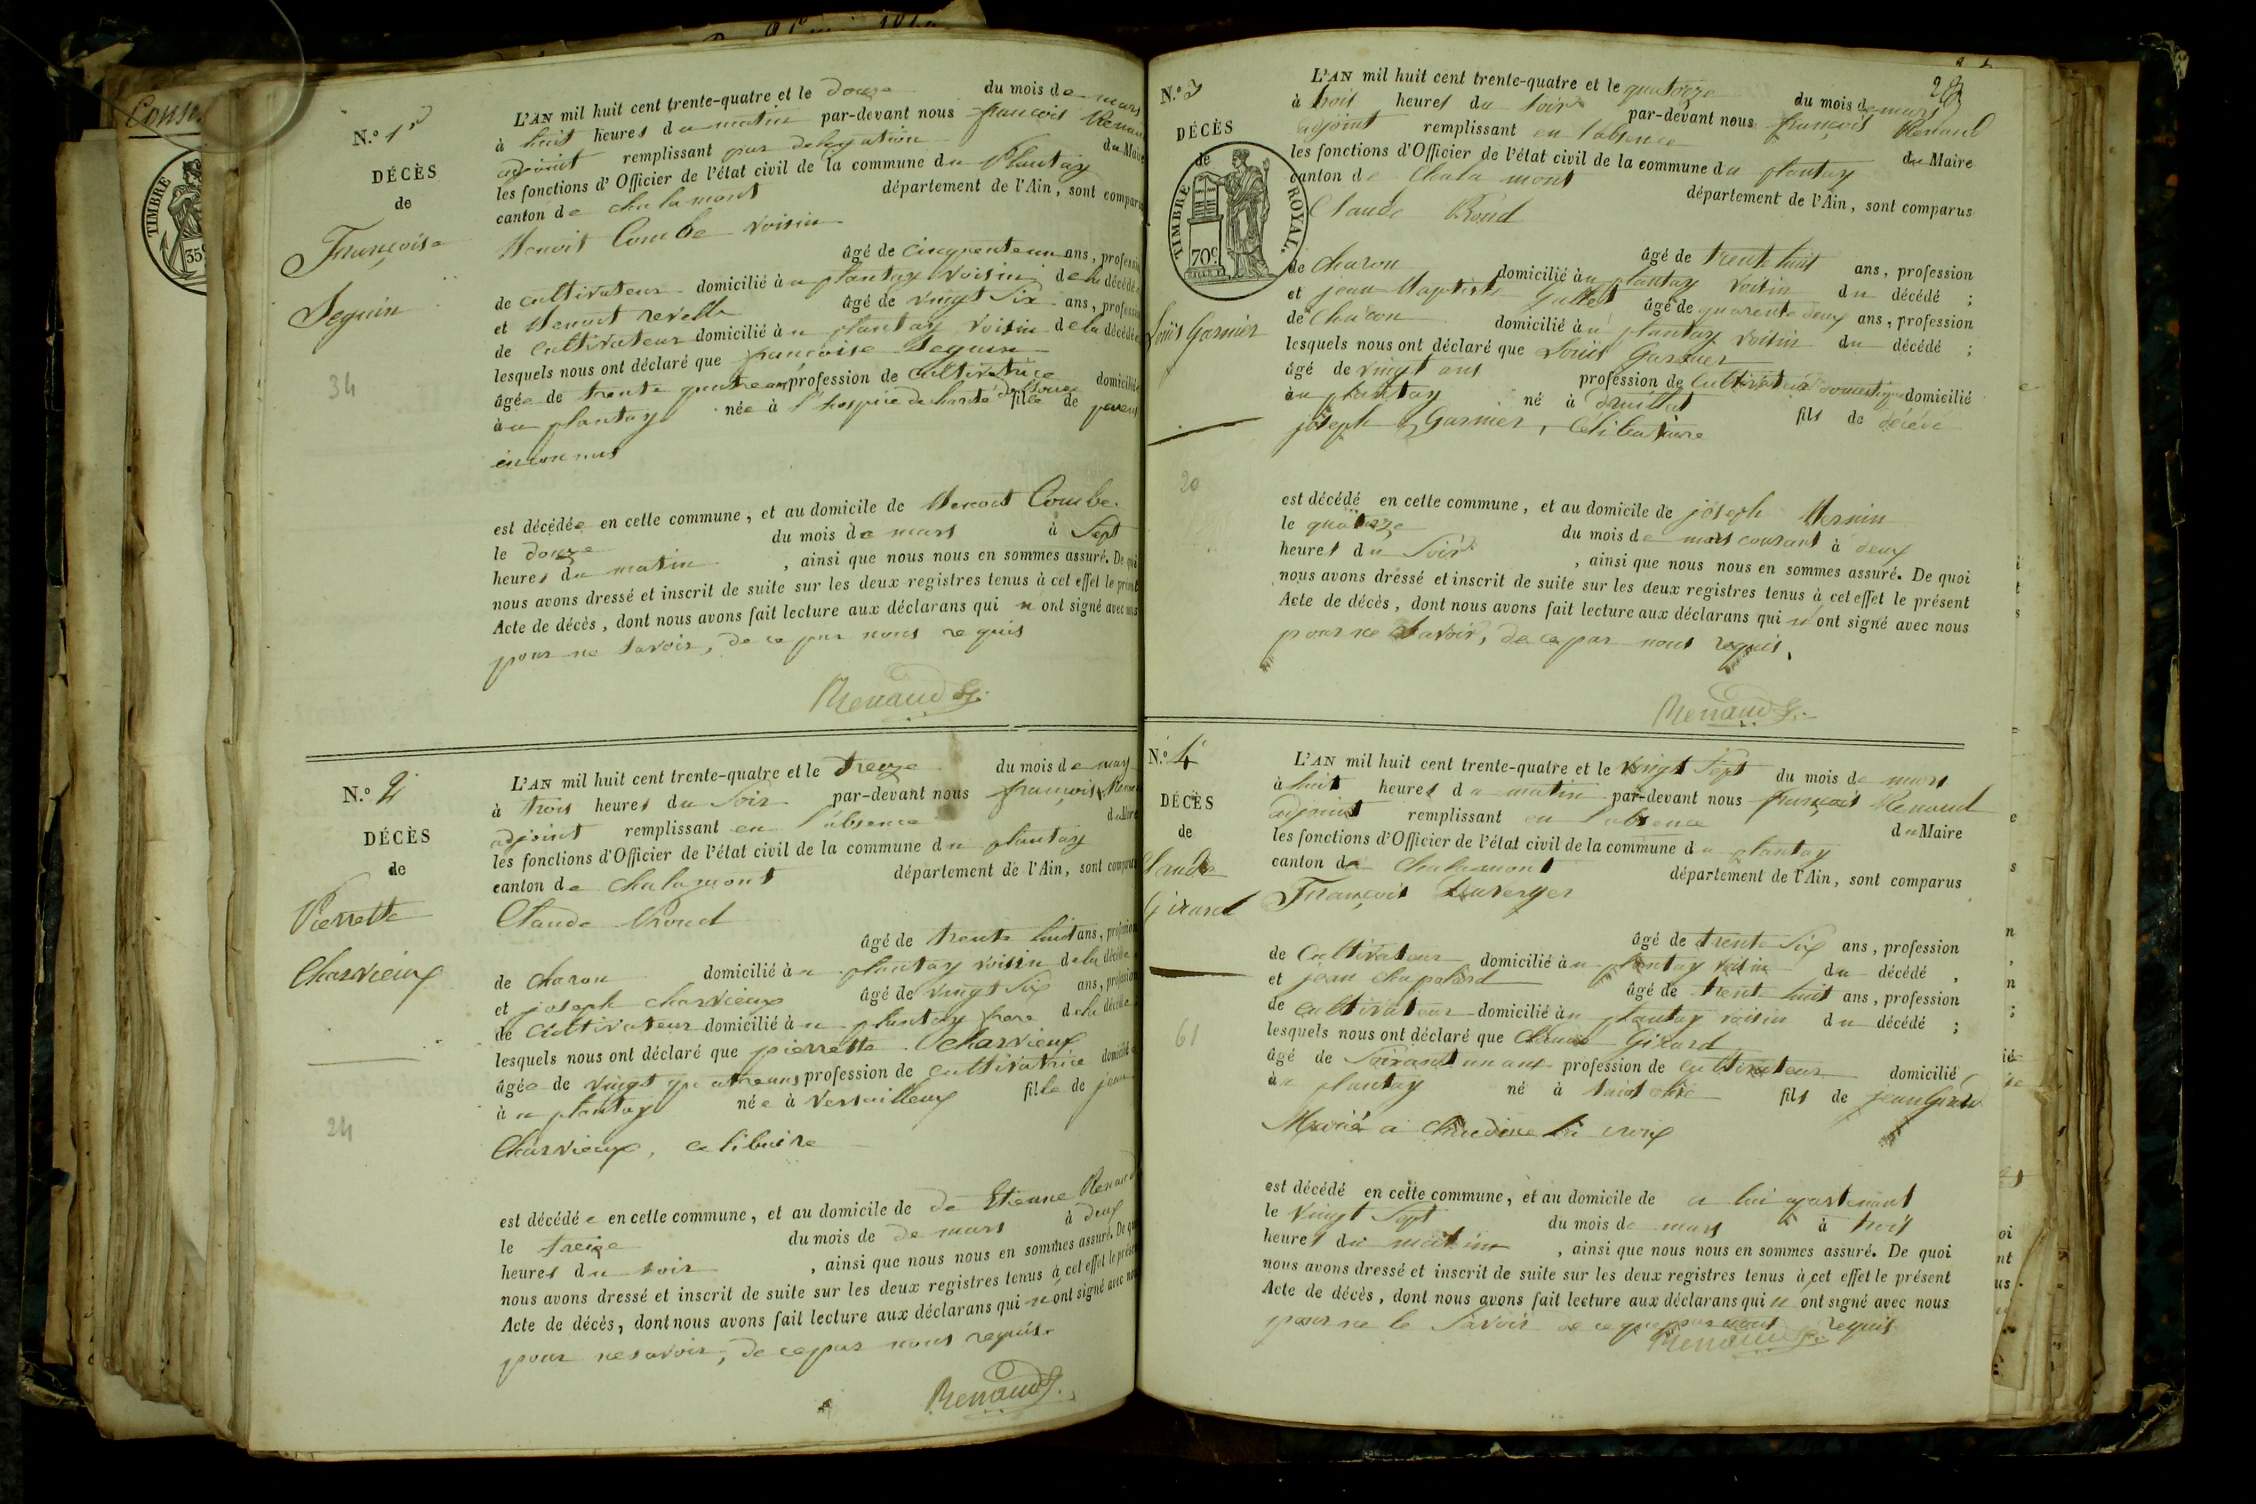 Conse
TIMBRE
35
N.º 1er
DÉCÈS
de
Françoise
Seguin
34
L'AN mil huit cent trente-quatre et le douze du mois de mars
à huit heures du matin par-devant nous françois Renau
adjoint remplissant par délégation du Maire
les fonctions d'Officier de l'état civil de la commune du plantay
canton de chalamont département de l'Ain, sont comparus
Benoit Combe voisin
âgé de cinquenteun ans, profession
de cultivateur domicilié à u plantay voisin de la décédée
et Benoit revelle âgé de vingt six ans, profession
de cultivateur domicilié à u plantay voisin de la décédée
lesquels nous ont déclaré que françoise Seguin
âgée de trente quatre ans profession de cultivatrice domiciliée
à u plantay née à l'hospice de charité fille de parens
inconnus
est décédée en cette commune, et au domicile de Benoit Combe
le douze du mois de mars à Sept
heures du matin , ainsi que nous nous en sommes assuré. De qui
nous avons dressé et inscrit de suite sur les deux registres tenus à cet effet le présent
Acte de décès, dont nous avons fait lecture aux déclarans qui n ont signé avec nous
pour ne savoir, de ce par nous requis
Renaud
N.º 2
DÉCÈS
de
Pierrette
Charvieux
24
L'AN mil huit cent trente-quatre et le treize du mois de mars
à trois heures du Soir par-devant nous françois Rena
adjoint remplissant en l'absence du Maire
les fonctions d'Officier de l'état civil de la commune du plantay
canton de chalamont département de l'Ain, sont comparus
Claude Broud
âgé de trente huit ans, profession
de charon domicilié à u plantay voisin de la décédée
et joseph charvieux âgé de vingt six ans, profession
de cultivateur domicilié à u plantay frere de la décédée
lesquels nous ont déclaré que pierrette Charvieux
âgée de vingt quatre ans profession de cultivatrice domicilié
à u plantay née à versailleux fille de jean
Charvieux, celibaire
est décédée en cette commune, et au domicile de de Etienne Renaud
le treize du mois de de mars à deux
heures du soir , ainsi que nous nous en sommes assuré. De quoi
nous avons dressé et inscrit de suite sur les deux registres tenus à cet effet le présent
Acte de décès, dont nous avons fait lecture aux déclarans qui n ont signé avec nous
pour ne savoir, de ce par nous requis.
Renaud
28
N.º 3
DÉCÈS
de
TIMBRE ROYAL.
70c
Louis Garnier
20
L'AN mil huit cent trente-quatre et le quatorze du mois de mars
à trois heures du soir par-devant nous françois Renaud
adjoint remplissant en l'absence du Maire
les fonctions d'Officier de l'état civil de la commune du plantay
canton de Chalamont département de l'Ain, sont comparus
Claude Broud
âgé de trente huit ans, profession
de charon domicilié à u plantay voisin du décédé ;
et jean Baptiste Gullet âgé de quarente deux ans, profession
de charon domicilié à u plantay voisin du décédé ;
lesquels nous ont déclaré que Louis Garnier
âgé de vingt ans profession de Cultivateur domestique domicilié
à u plantay né à druillat fils de décédé
joseph Garnier, Célibataire
est décédé en cette commune, et au domicile de joseph Bernin
le quatorze du mois de mars courant à deux
heures du Soir , ainsi que nous nous en sommes assuré. De quoi
nous avons dressé et inscrit de suite sur les deux registres tenus à cet effet le présent
Acte de décès, dont nous avons fait lecture aux déclarans qui n ont signé avec nous
pour ne Savoir, de ce par nous requis.
Renaud
N.º 4
DÉCÈS
de
Claude
Girard
61
L'AN mil huit cent trente-quatre et le vingt Sept du mois de mars
à huit heures du matin par-devant nous françois Renaud
adjoint remplissant en l'absence du Maire
les fonctions d'Officier de l'état civil de la commune du plantay
canton de chalamont département de l'Ain, sont comparus
François Duverger
âgé de trente Six ans, profession
de Cultivateur domicilié à u plantay voisin du décédé ,
et jean chapolard âgé de trente huit ans, profession
de cultivateur domicilié à u plantay voisin du décédé ;
lesquels nous ont déclaré que Claude Girard
âgé de Soixant un ans profession de cultivateur domicilié
à u plantay né à saint olive fils de jean Girard
Marié a Claudine la croix
est décédé en cette commune, et au domicile de a lui apartenant
le vingt Sept du mois de mars à trois
heures du matin , ainsi que nous nous en sommes assuré. De quoi
nous avons dressé et inscrit de suite sur les deux registres tenus à cet effet le présent
Acte de décès, dont nous avons fait lecture aux déclarans qui n ont signé avec nous
pour ne le Savoir de ce par nous requis
Renaud